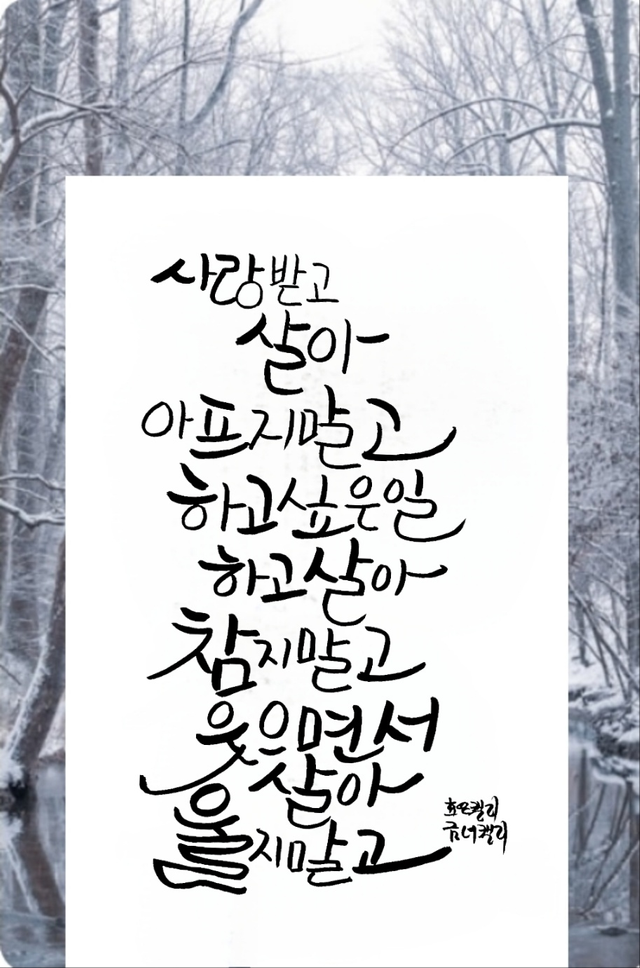 사랑받고
살아
아프지말고
하고싶은일
하고살아
참지말고
웃으면서
살아
울지말고
캘리
캘리